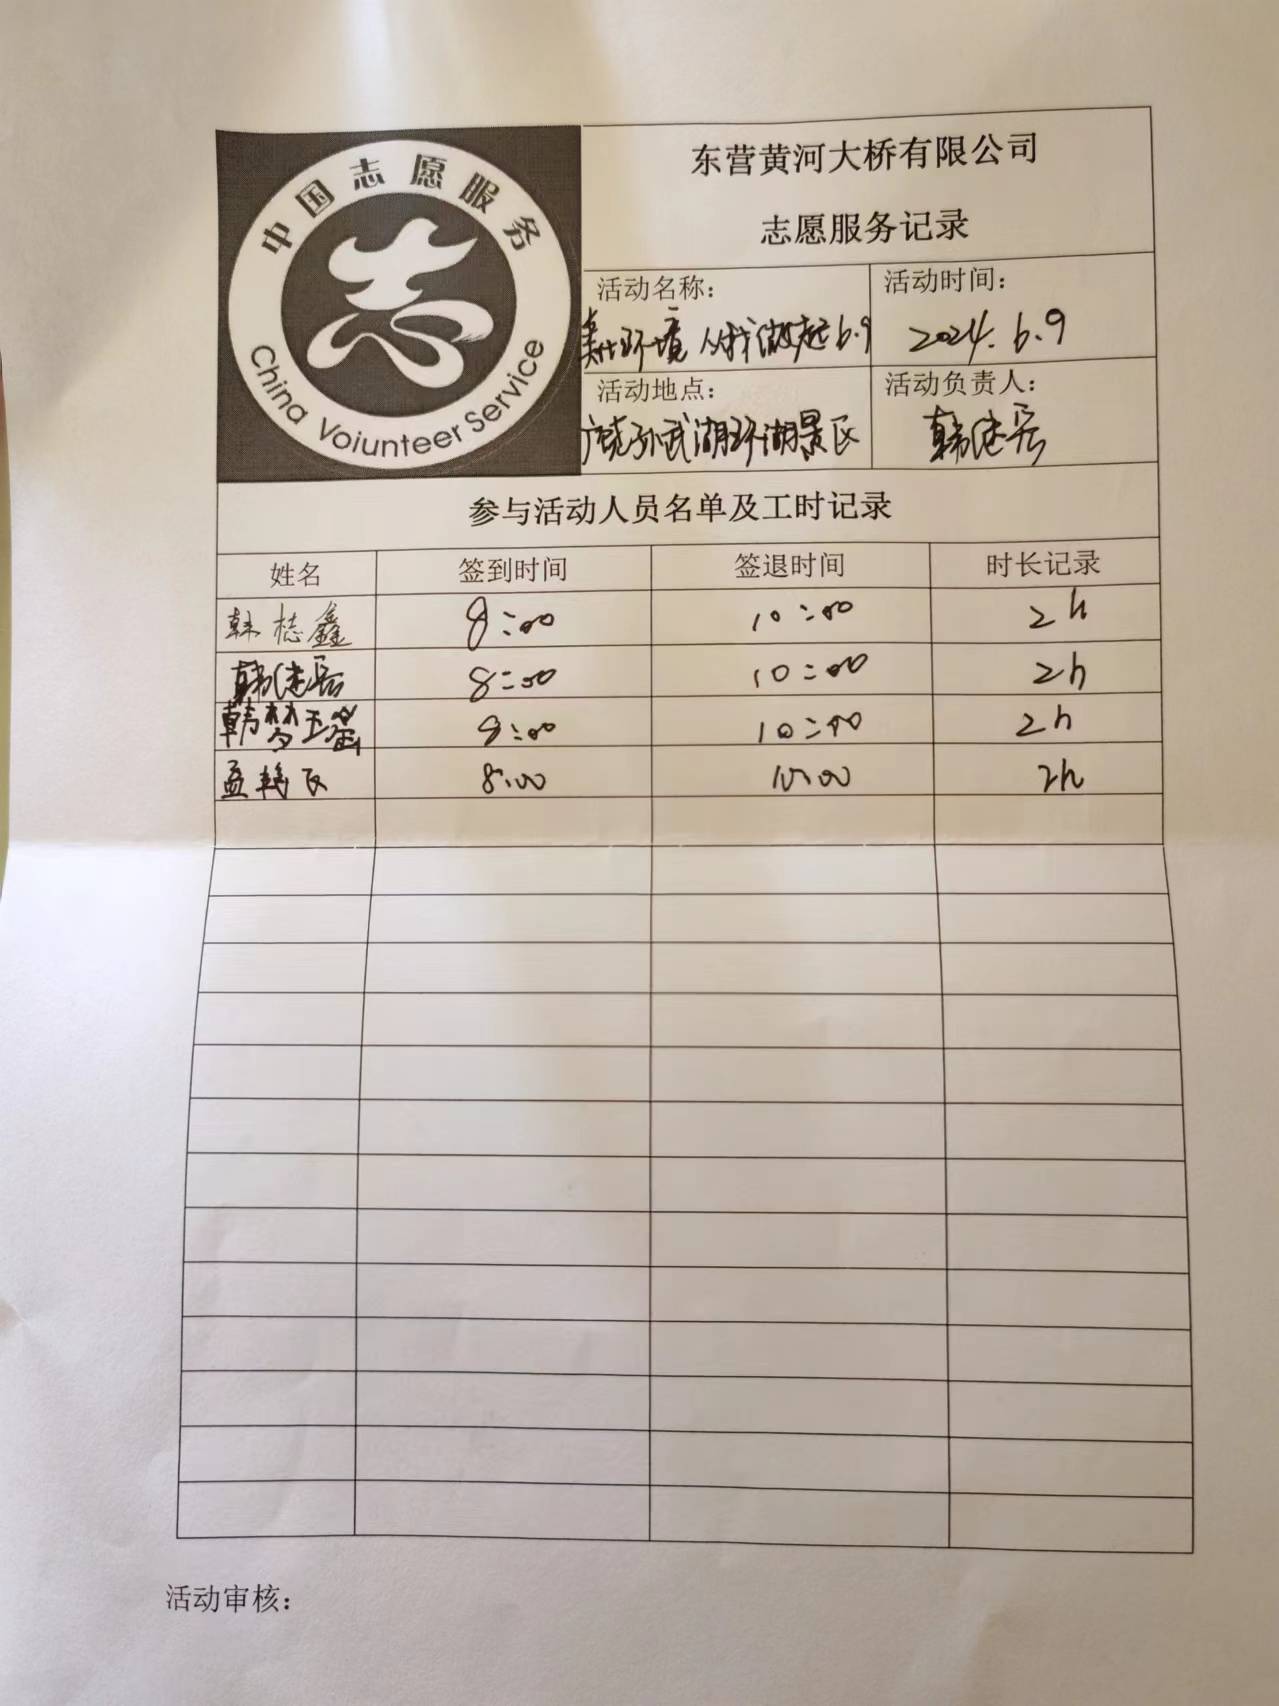 中国志愿服务
志
China Voiunteer Service
东营黄河大桥有限公司
志愿服务记录
活动名称:
美化环境 从我做起 6.9
活动时间:
2024.6.9
活动地点:
广饶孙武湖环湖景区
活动负责人:
韩
参与活动人员名单及工时记录
姓名 签到时间 签退时间 时长记录
韩志鑫 8:00 10:00 2h
韩 8:00 10:00 2h
韩梦玉 8:00 10:00 2h
孟 8:00 10:00 2h
活动审核: